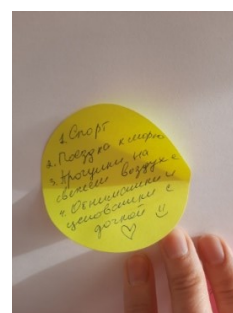 1. Спорт
2. Поездка к морю
3. Прогулки на
свежем воздухе
4. Обнимашки и
целовашки с
дочкой !!